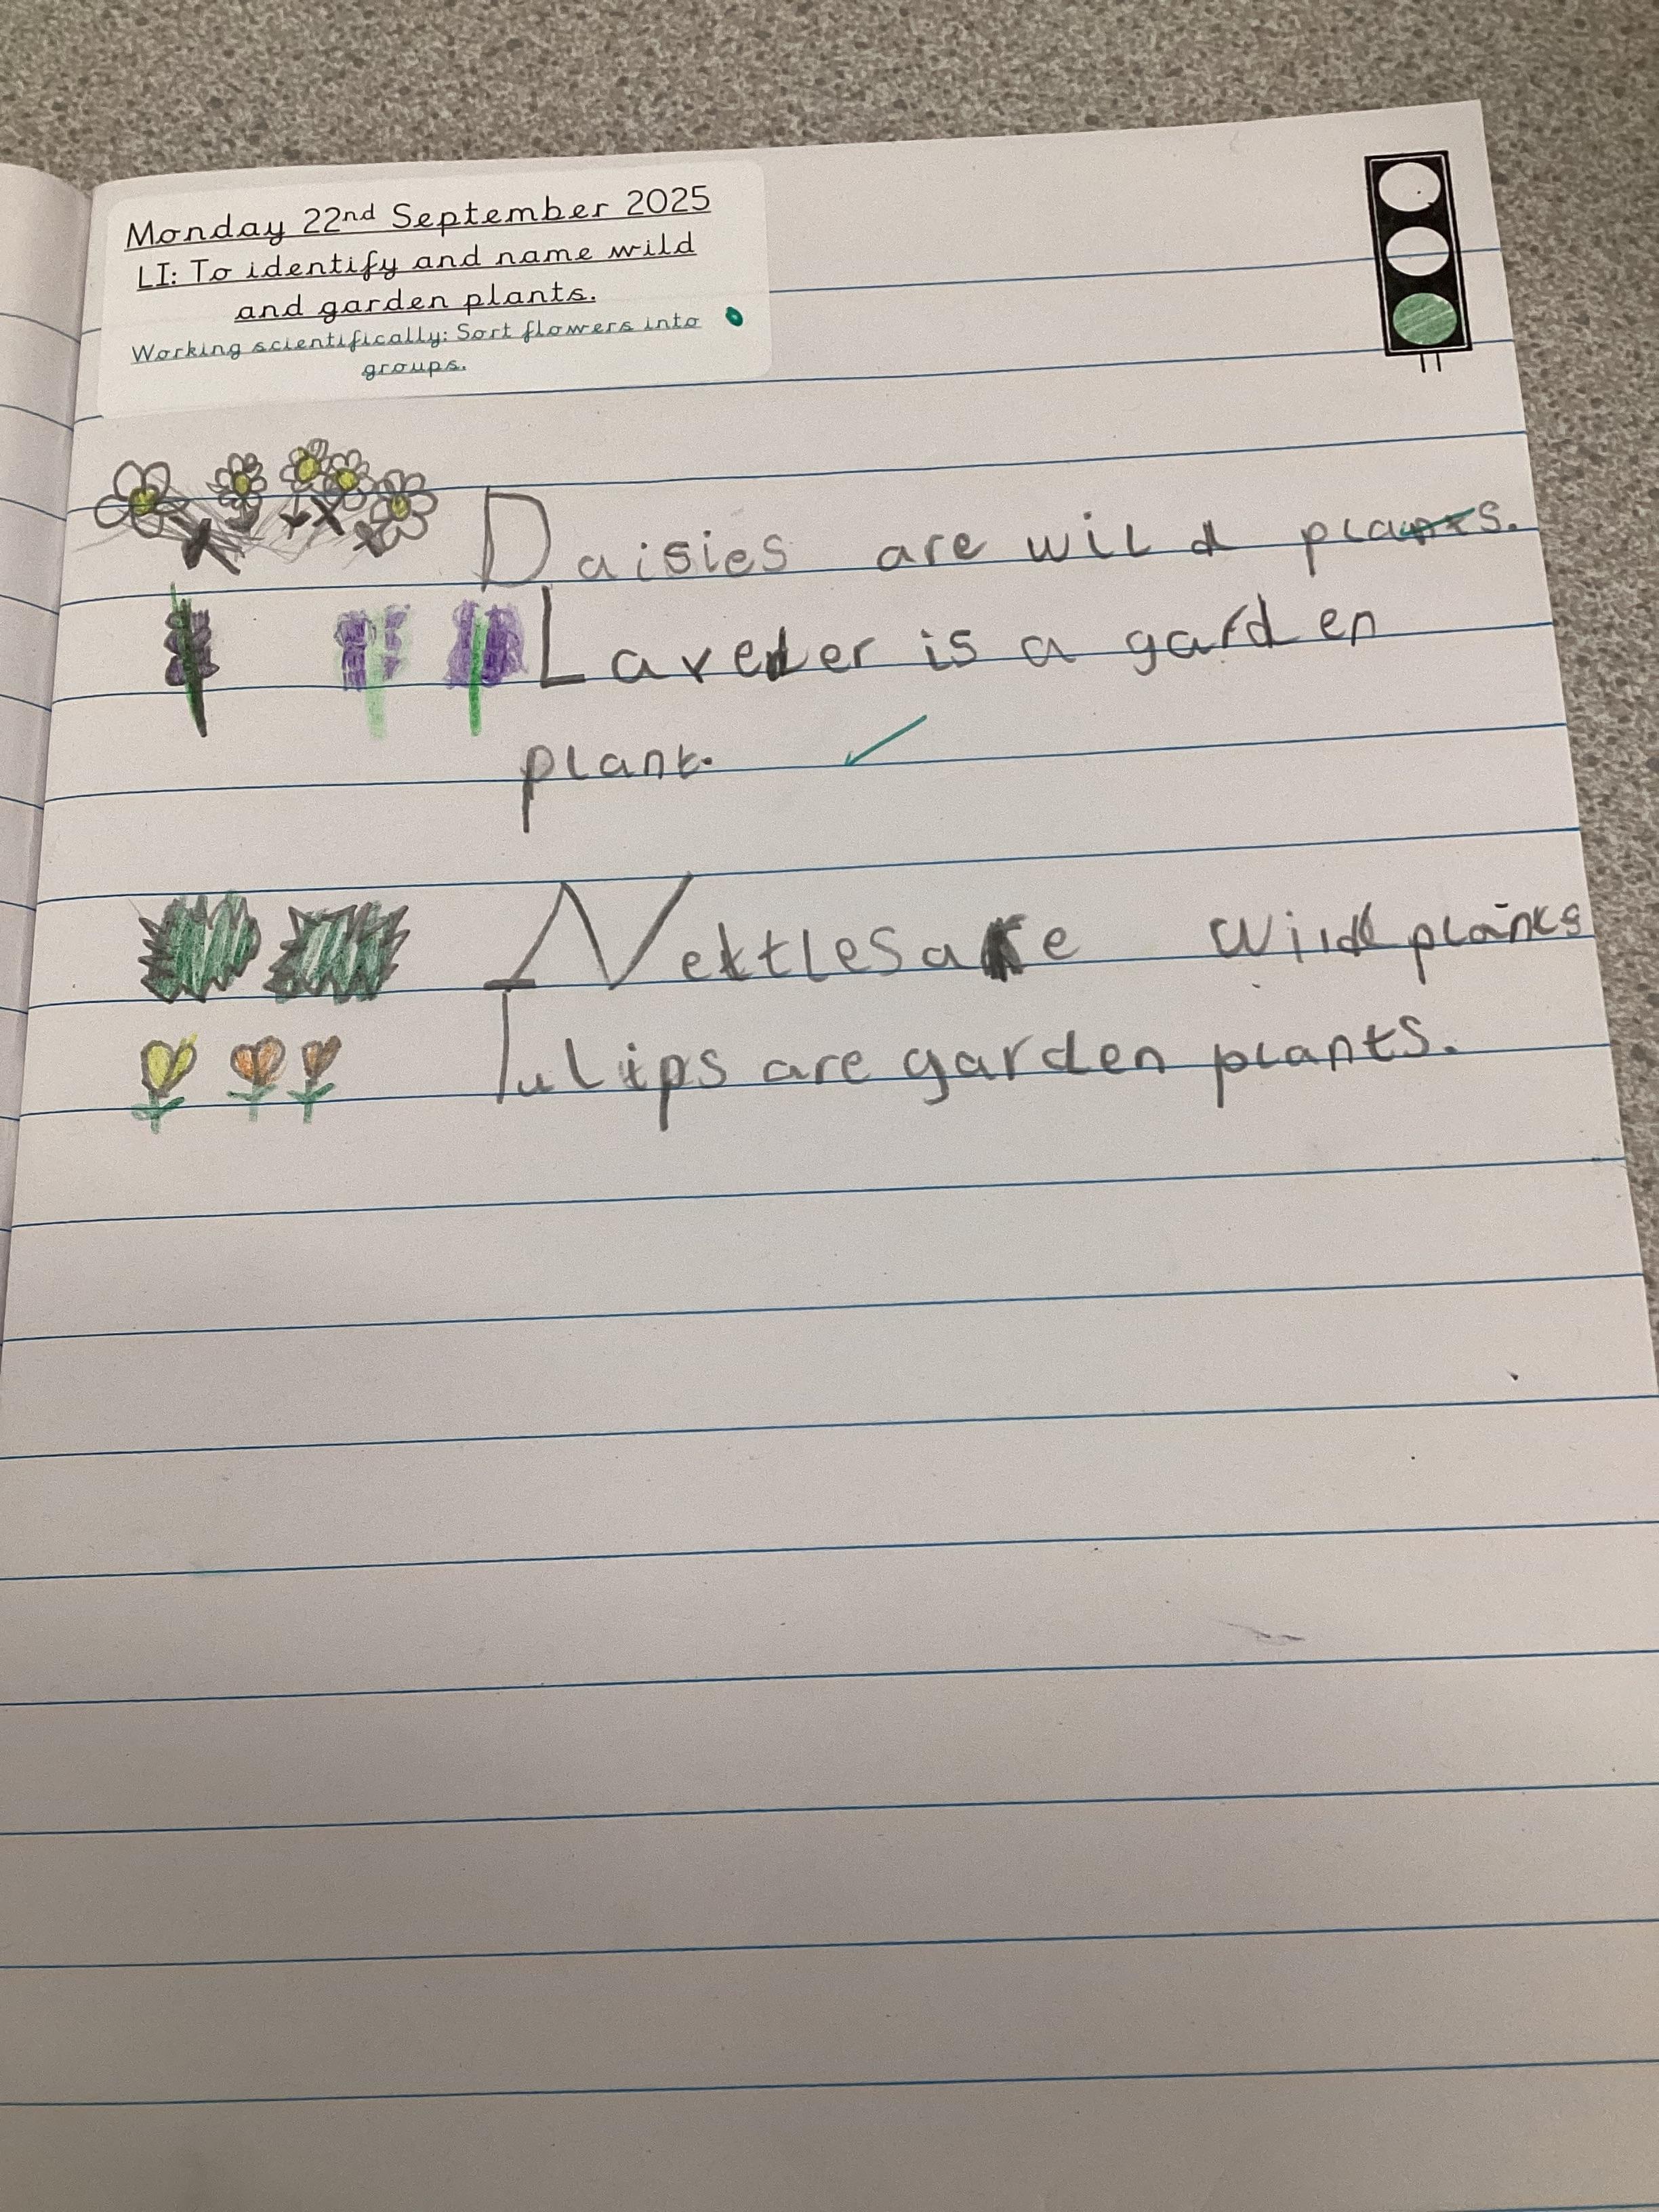 Monday 22nd September 2025
LI: To identify and name wild
and garden plants.
Working scientifically: Sort flowers into
groups.
Daisies are wild plants.
Lavender is a garden
plant.
Nettles are wild plants
Tulips are garden plants.